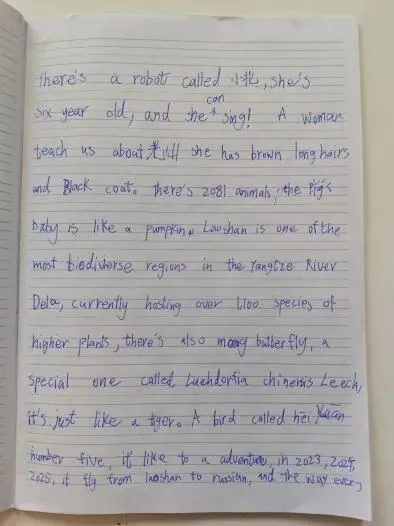 there's a robot called 小花, she's
six year old, and she can sing! A woman
teach us about 老山 she has brown long hairs
and Black coat. there's 2081 animals, the Pig's
baby is like a pumpkin. Laoshan is one of the
most biodiverse regions in the Yangtze River
Dela, currently hosting over 1,100 species of
higher plants, there's also many butterfly, a
special one called Luehdorfia chinenis Leech,
it's just like a tiger. A bird called hēi guàn
number five, it like to a adventure, in 2023, 2024,
2025, it fly from laoshan to russian, and the way every